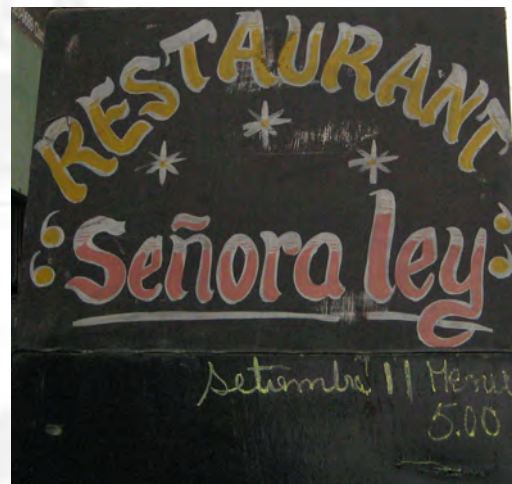 RESTAURANT
“Señora ley”
setiembre 11 Menu
5.00